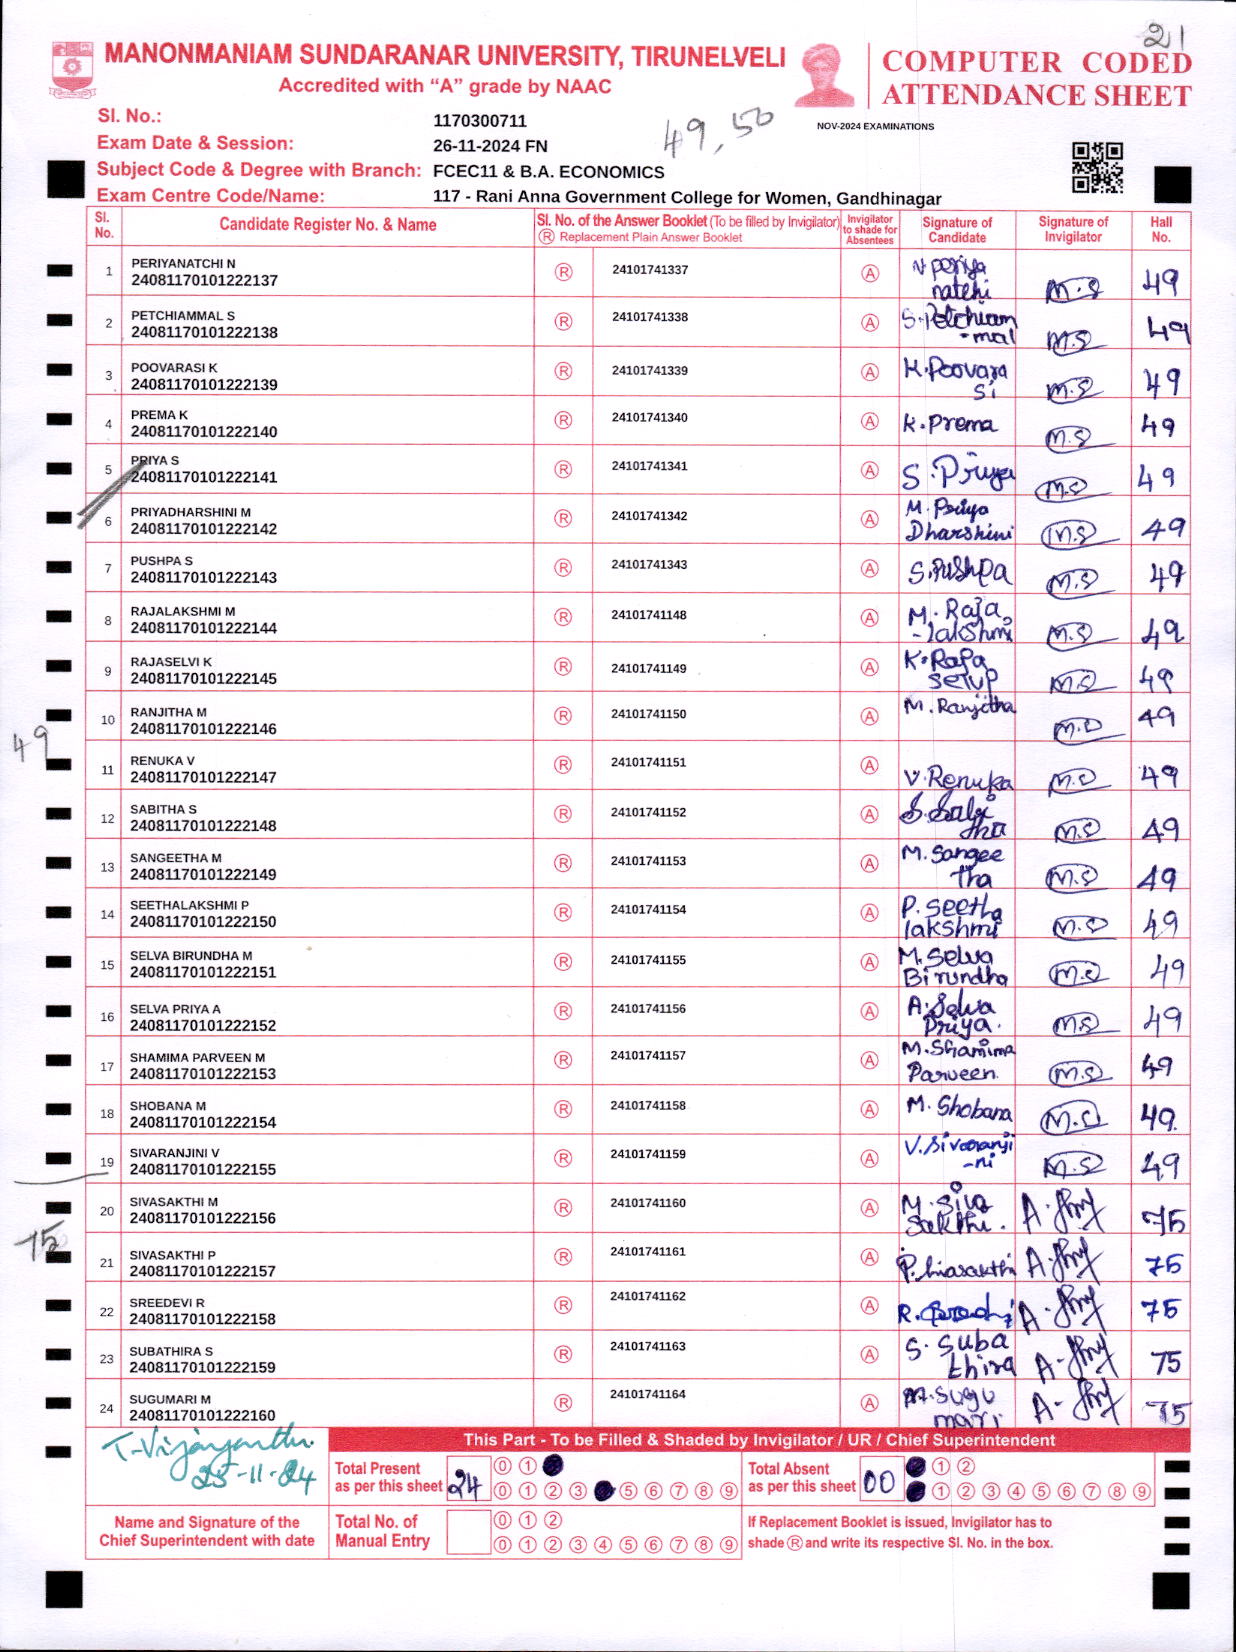 21
MANONMANIAM SUNDARANAR UNIVERSITY, TIRUNELVELI
Accredited with “A” grade by NAAC
COMPUTER CODED
ATTENDANCE SHEET
NOV-2024 EXAMINATIONS
Sl. No.: 1170300711
49, 50
Exam Date & Session: 26-11-2024 FN
Subject Code & Degree with Branch: FCEC11 & B.A. ECONOMICS
Exam Centre Code/Name: 117 - Rani Anna Government College for Women, Gandhinagar
Sl. No. Candidate Register No. & Name Sl. No. of the Answer Booklet (To be filled by Invigilator) Ⓡ Replacement Plain Answer Booklet Invigilator to shade for Absentees Signature of Candidate Signature of Invigilator Hall No.
1 PERIYANATCHI N 24081170101222137 Ⓡ 24101741337 Ⓐ N periya natchi M.S 49
2 PETCHIAMMAL S 24081170101222138 Ⓡ 24101741338 Ⓐ S.Petchiam -mal M.S 49
3 POOVARASI K 24081170101222139 Ⓡ 24101741339 Ⓐ K.Poovara si M.S 49
4 PREMA K 24081170101222140 Ⓡ 24101741340 Ⓐ K.Prema M.S 49
5 PRIYA S 24081170101222141 Ⓡ 24101741341 Ⓐ S.Priya M.S 49
6 PRIYADHARSHINI M 24081170101222142 Ⓡ 24101741342 Ⓐ M.Priya Dharshini M.S 49
7 PUSHPA S 24081170101222143 Ⓡ 24101741343 Ⓐ S.Pushpa M.S 49
8 RAJALAKSHMI M 24081170101222144 Ⓡ 24101741148 Ⓐ M.Raja -lakshmi M.S 49
9 RAJASELVI K 24081170101222145 Ⓡ 24101741149 Ⓐ K.Raja M.S 49
10 RANJITHA M 24081170101222146 Ⓡ 24101741150 Ⓐ M.Ranjitha M.S 49
49
11 RENUKA V 24081170101222147 Ⓡ 24101741151 Ⓐ V.Renuka M.S 49
12 SABITHA S 24081170101222148 Ⓡ 24101741152 Ⓐ S.Sabi tha M.S 49
13 SANGEETHA M 24081170101222149 Ⓡ 24101741153 Ⓐ M.Sangee tha M.S 49
14 SEETHALAKSHMI P 24081170101222150 Ⓡ 24101741154 Ⓐ P.Seetha lakshmi M.S 49
15 SELVA BIRUNDHA M 24081170101222151 Ⓡ 24101741155 Ⓐ M.Selva Birundha M.S 49
16 SELVA PRIYA A 24081170101222152 Ⓡ 24101741156 Ⓐ A.Selva Priya. M.S 49
17 SHAMIMA PARVEEN M 24081170101222153 Ⓡ 24101741157 Ⓐ M.Shamima Parveen. M.S 49
18 SHOBANA M 24081170101222154 Ⓡ 24101741158 Ⓐ M.Shobana M.S 49
19 SIVARANJINI V 24081170101222155 Ⓡ 24101741159 Ⓐ V.Sivaranji -ni M.S 49
20 SIVASAKTHI M 24081170101222156 Ⓡ 24101741160 Ⓐ M.Siva Sakthi. 75
75
21 SIVASAKTHI P 24081170101222157 Ⓡ 24101741161 Ⓐ P.Sivasakthi 75
22 SREEDEVI R 24081170101222158 Ⓡ 24101741162 Ⓐ 75
23 SUBATHIRA S 24081170101222159 Ⓡ 24101741163 Ⓐ S.Suba thira 75
24 SUGUMARI M 24081170101222160 Ⓡ 24101741164 Ⓐ M.Sugu mari 75
25-11-24
This Part - To be Filled & Shaded by Invigilator / UR / Chief Superintendent
Total Present as per this sheet 24 0 1 0 1 2 3 5 6 7 8 9
Total Absent as per this sheet 00 1 2 1 2 3 4 5 6 7 8 9
Name and Signature of the Chief Superintendent with date
Total No. of Manual Entry 0 1 2 0 1 2 3 4 5 6 7 8 9
If Replacement Booklet is issued, Invigilator has to
shade Ⓡ and write its respective Sl. No. in the box.